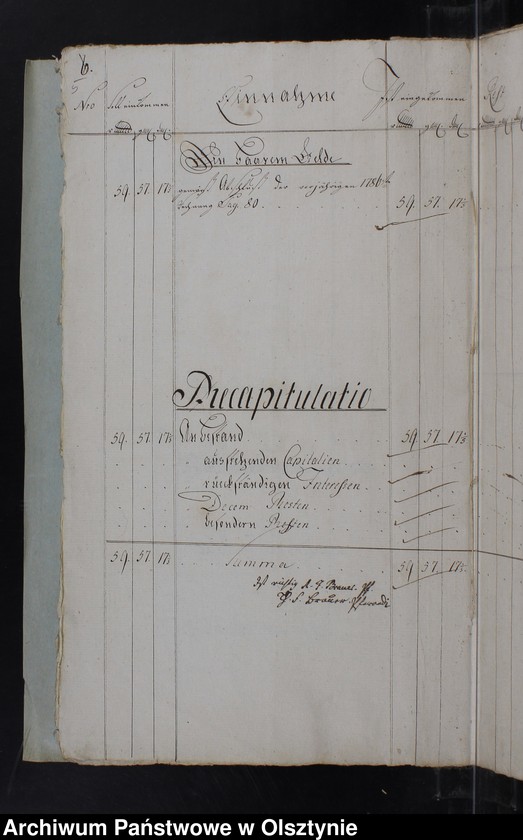 6.
Nro Soll einkommen Einnahme Ist eingekommen Rest
An baarem Gelde
59. 57. 17½ gemäß Abschluß der vorjährigen 1786
Rechnung Pag. 80 59. 57. 17½
Recapitulatio
59. 57. 17½ An Bestand 59. 57. 17½
ausstehenden Capitalien
rückständigen Interessen
Decem Resten
besondern Resten
59. 57. 17½ Summa 59. 57. 17½
Ist richtig
Brauer
Archiwum Państwowe w Olsztynie